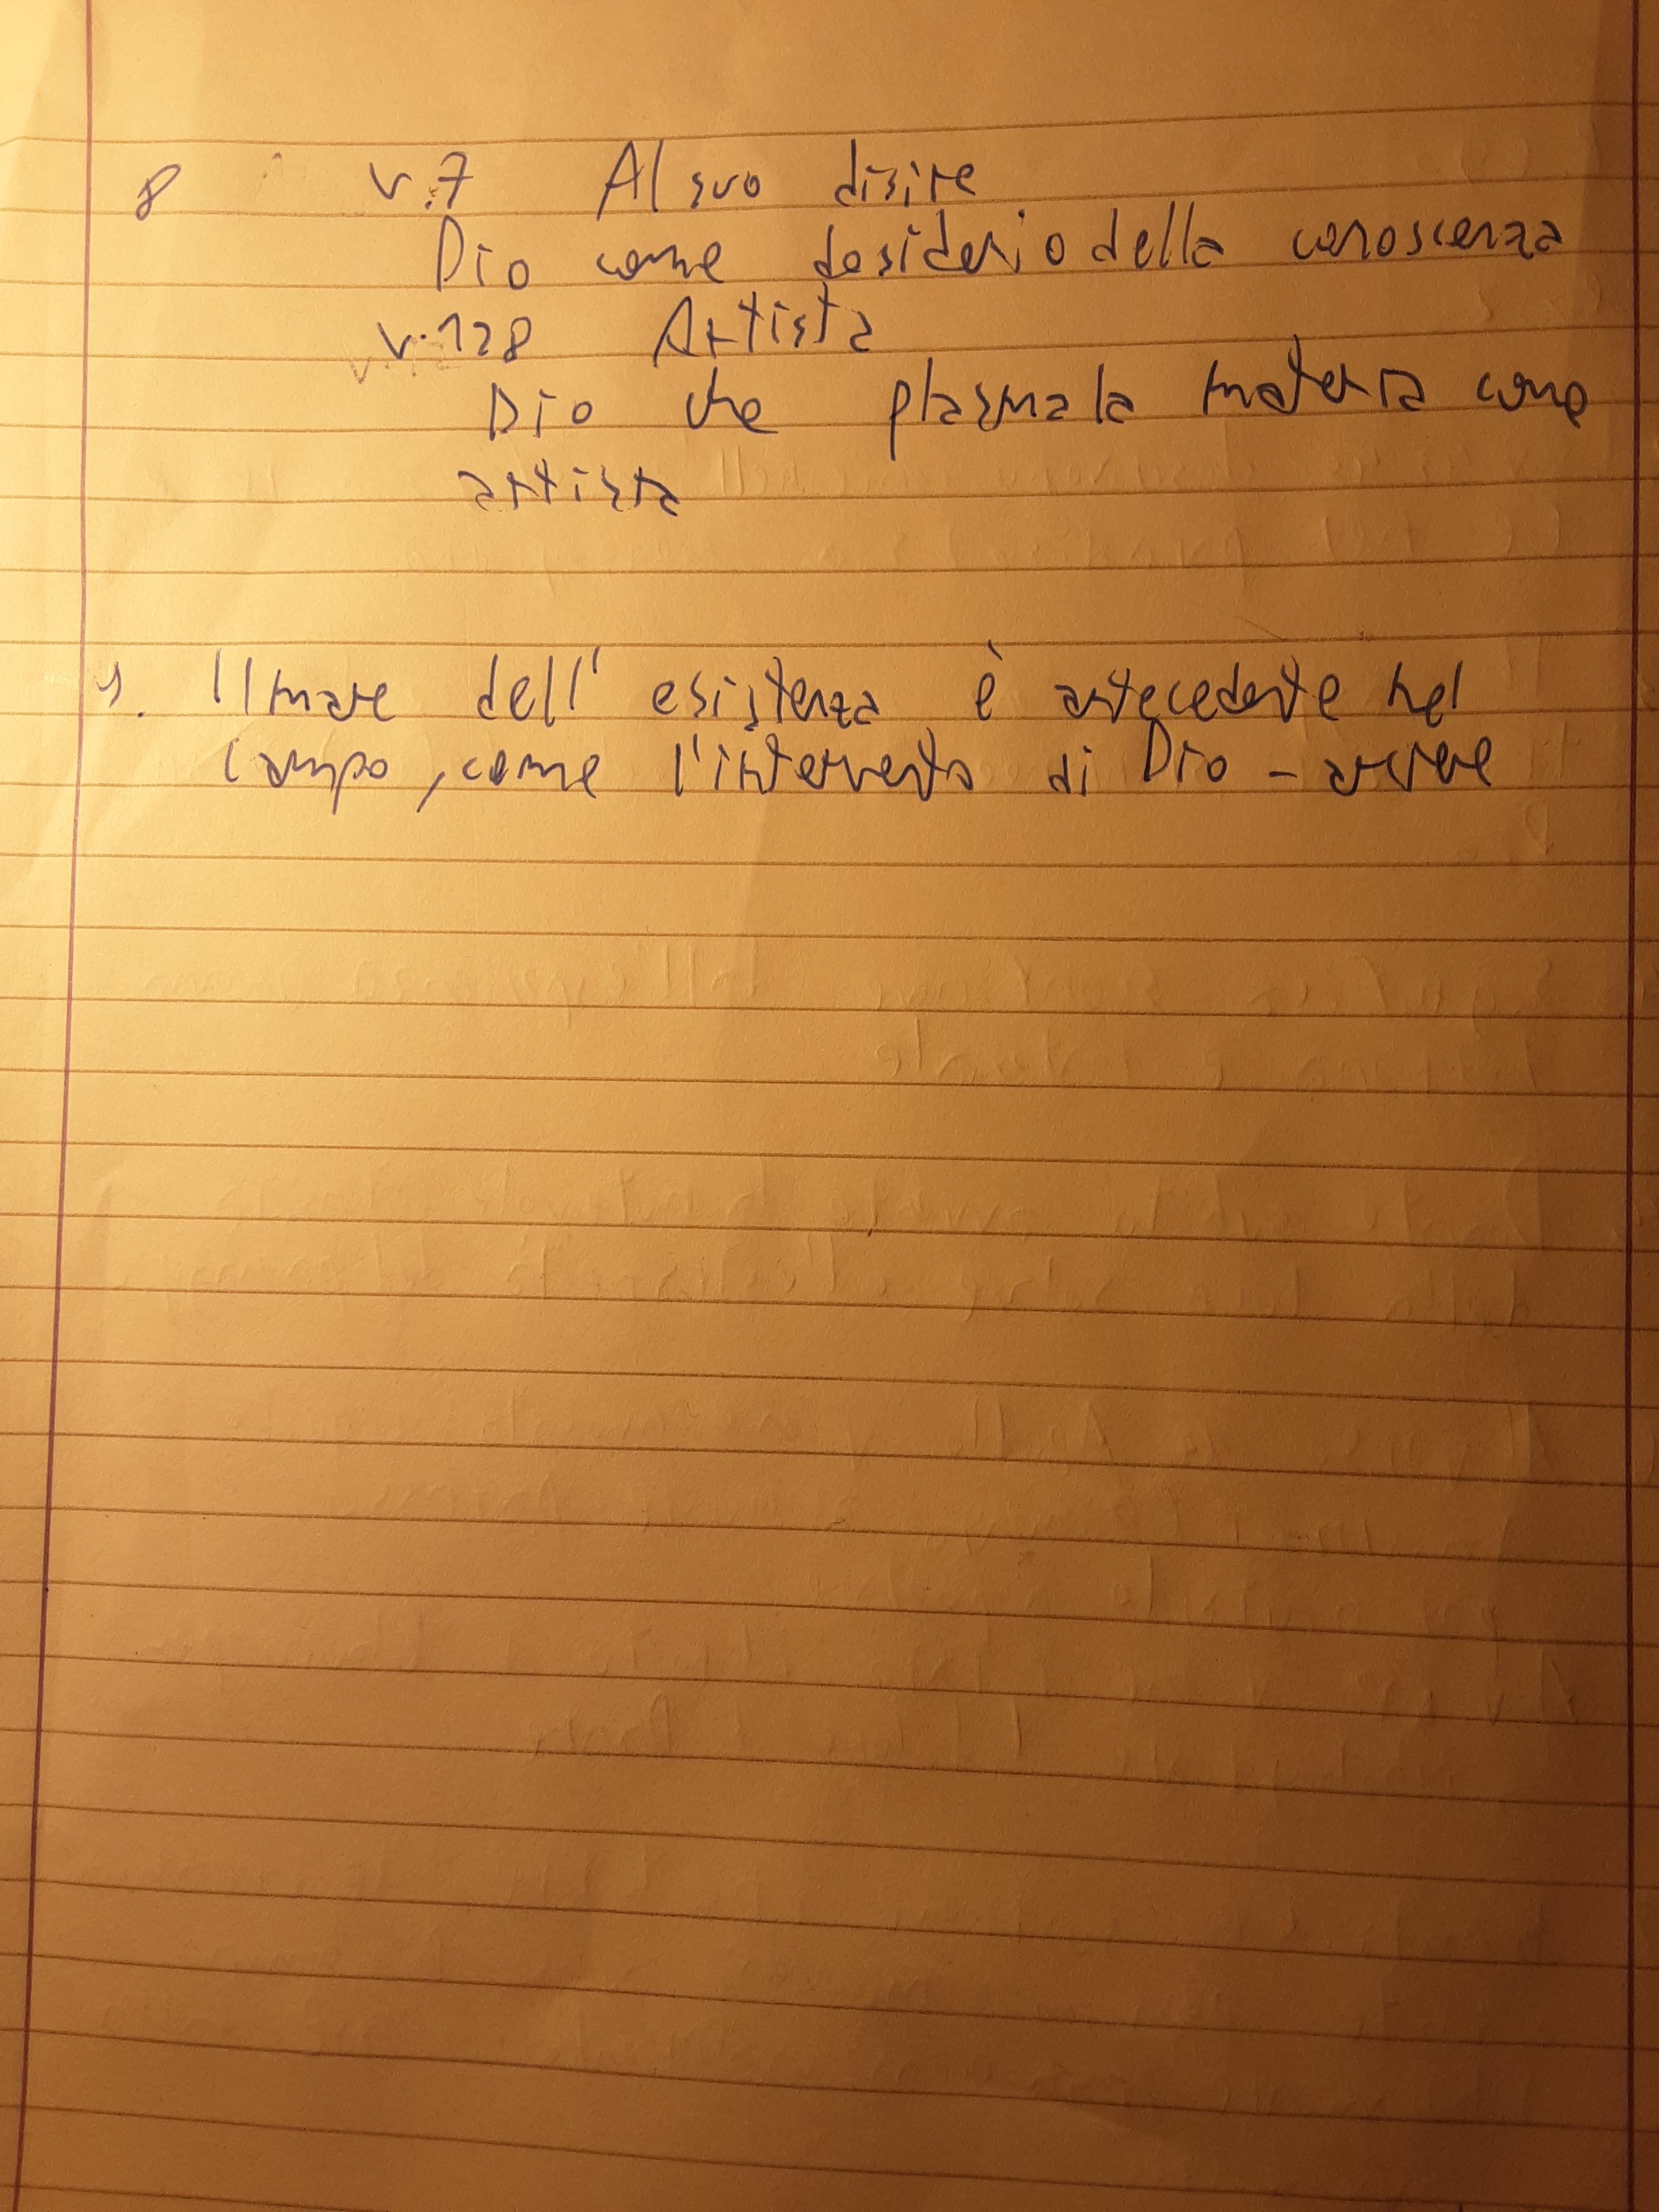 8 v.7 Al suo disire
Dio come desiderio della conoscenza
v.128 Artista
Dio che plasma la materia come
artista
9. Il mare dell'esistenza è antecedente nel
campo, come l'intervento di Dio - arciere